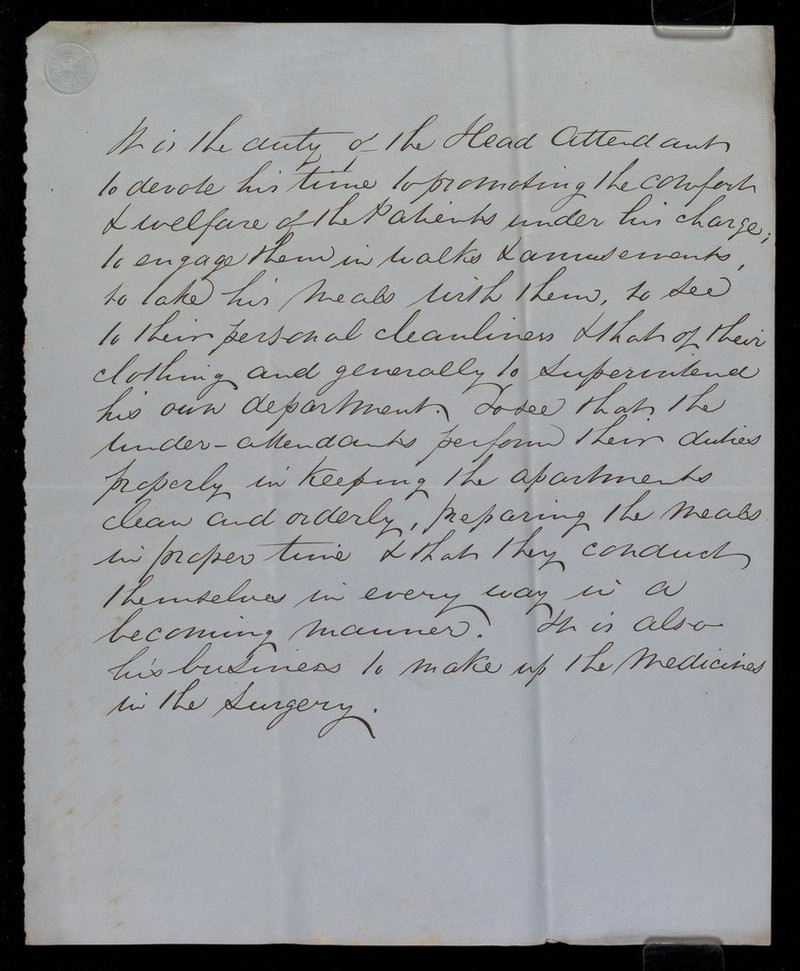 It is the duty of the Head Attendant
to devote his time to promoting the comfort
& welfare of the Patients under his charge;
to engage them in walks & amusements,
to take his meals with them, to see
to their personal cleanliness & that of their
clothing and generally to superintend
his own department. To see that the
under-attendants perform their duties
properly in keeping the apartments
clean and orderly, preparing the meals
in proper time & that they conduct
themselves in every way in a
becoming manner. It is also
his business to make up the Medicines
in the Surgery.